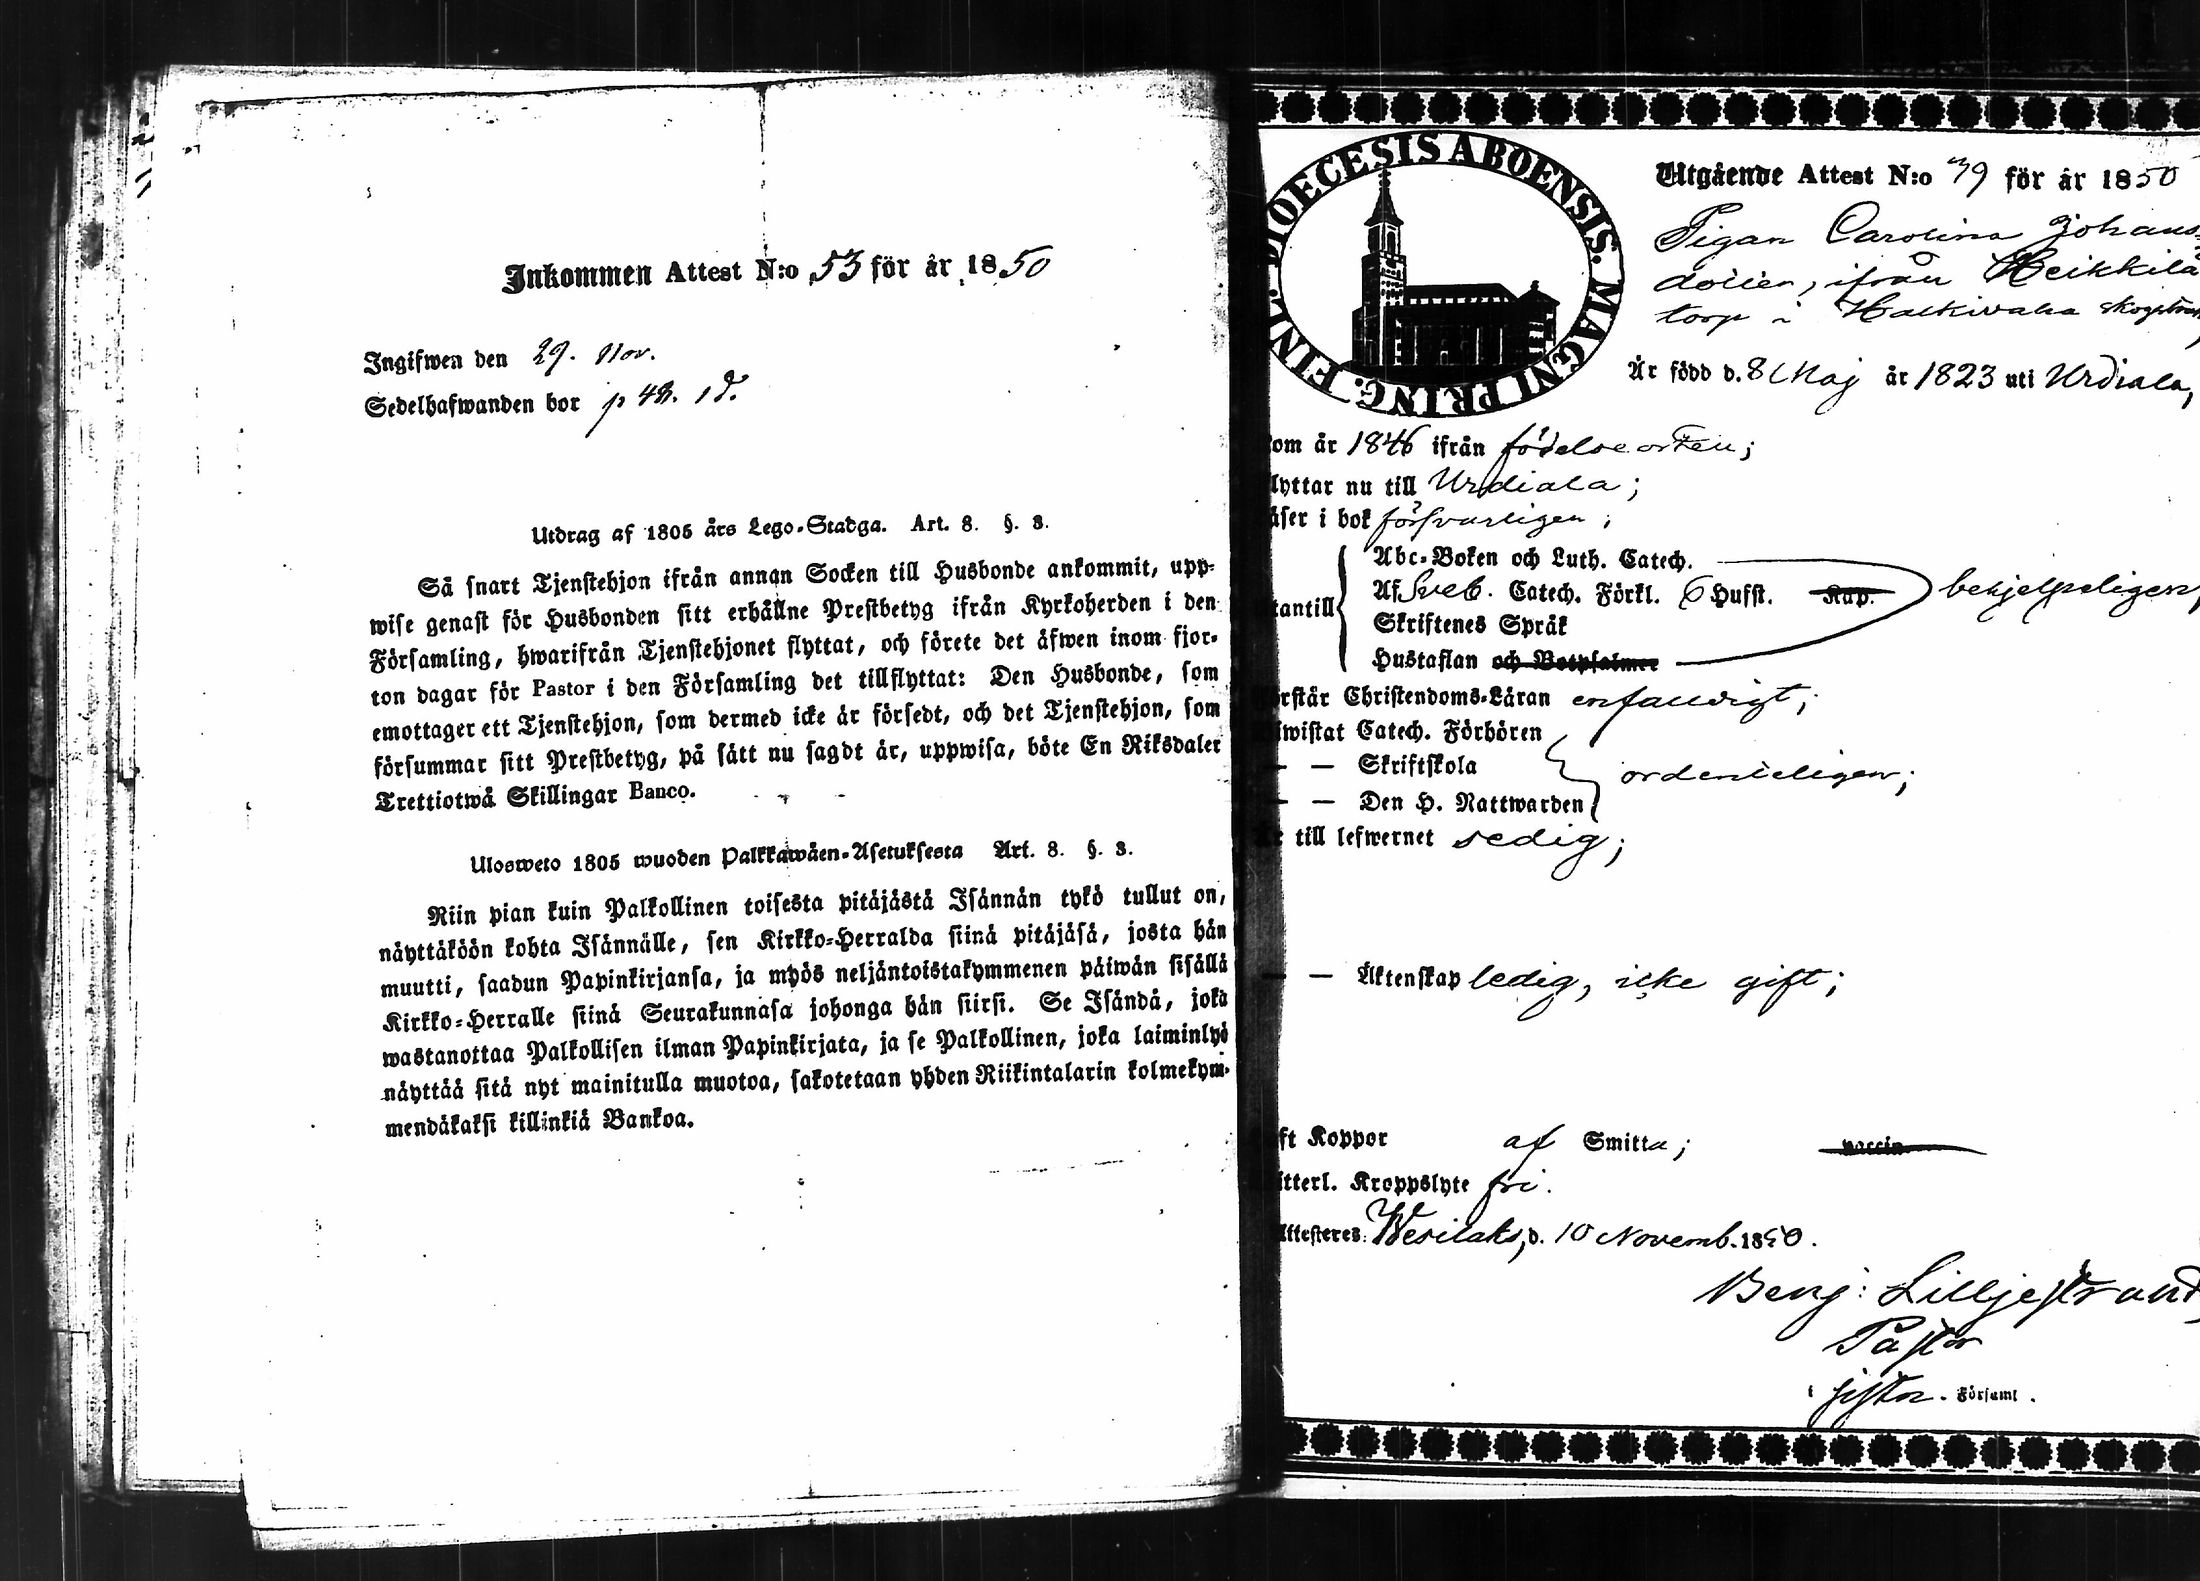 Inkommen Attest N:o 53 för år 1850
Ingifwen den 29. Nov.
Sedelhafwanden bor p 48. 1 d.
Utdrag af 1805 års Lego-Stadga. Art. 8. §. 3.
Så snart Tjenstehjon ifrån annan Socken till Husbonde ankommit, upp-
wise genast för Husbonden sitt erhållne Prestbetyg ifrån Kyrkoherden i den
Församling, hwarifrån Tjenstehjonet flyttat, och förete det äfwen inom fjor-
ton dagar för Pastor i den Församling det tillflyttat: Den Husbonde, som
emottager ett Tjenstehjon, som dermed icke är försedt, och det Tjenstehjon, som
försummar sitt Prestbetyg, på sätt nu sagdt är, uppwisa, böte En Riksdaler
Trettiotwå Skillingar Banco.
Ulosweto 1805 wuoden Palkkawäen-Asetuksesta Art. 8. §. 3.
Niin pian kuin Palkollinen toisesta pitäjästä Isännän tykö tullut on,
näyttäköön kohta Isännälle, sen Kirkko-Herralda siinä pitäjäsä, josta hän
muutti, saadun Papinkirjansa, ja myös neljäntoistakymmenen päiwän sisällä
Kirkko-Herralle siinä Seurakunnasa johonga hän siirsi. Se Isändä, joka
wastanottaa Palkollisen ilman Papinkirjata, ja se Palkollinen, joka laiminlyö
näyttää sitä nyt mainitulla muotoa, sakotetaan yhden Riikintalarin kolmekym-
mendäkaksi killinkiä Bankoa.
DIOECESIS ABOENSIS. MAGNI PRING. FINL.
Utgående Attest N:o 79 för år 1850
Pigan Carolina Johans-
dotter, ifrån Heikkilä
torp i Halkivaha
Är född d. 8 Maj år 1823 uti Urdiala,
om år 1846 ifrån födelseorten;
lyttar nu till Urdiala;
äser i bok försvarligen;
Abc-Boken och Luth. Catech.
Af Sveb. Catech. Förkl. 6 Hufst. Kap. behjelpeligen,
tantill
Skriftenes Språk
Hustaflan och Botpsalmer
rstår Christendoms-Läran enfaldigt;
iwistat Catech. Förhören
— — Skriftskola ordenteligen;
— — Den H. Nattwarden
till lefwernet sedig;
— — Äktenskap ledig, icke gift;
ft Koppor af Smitta; vaccin
itterl. Kroppslyte fri.
ttesteres: Wesilaks, d. 10 Novemb. 1850.
Benj: Lilljestrand,
Pastor
i Församl.